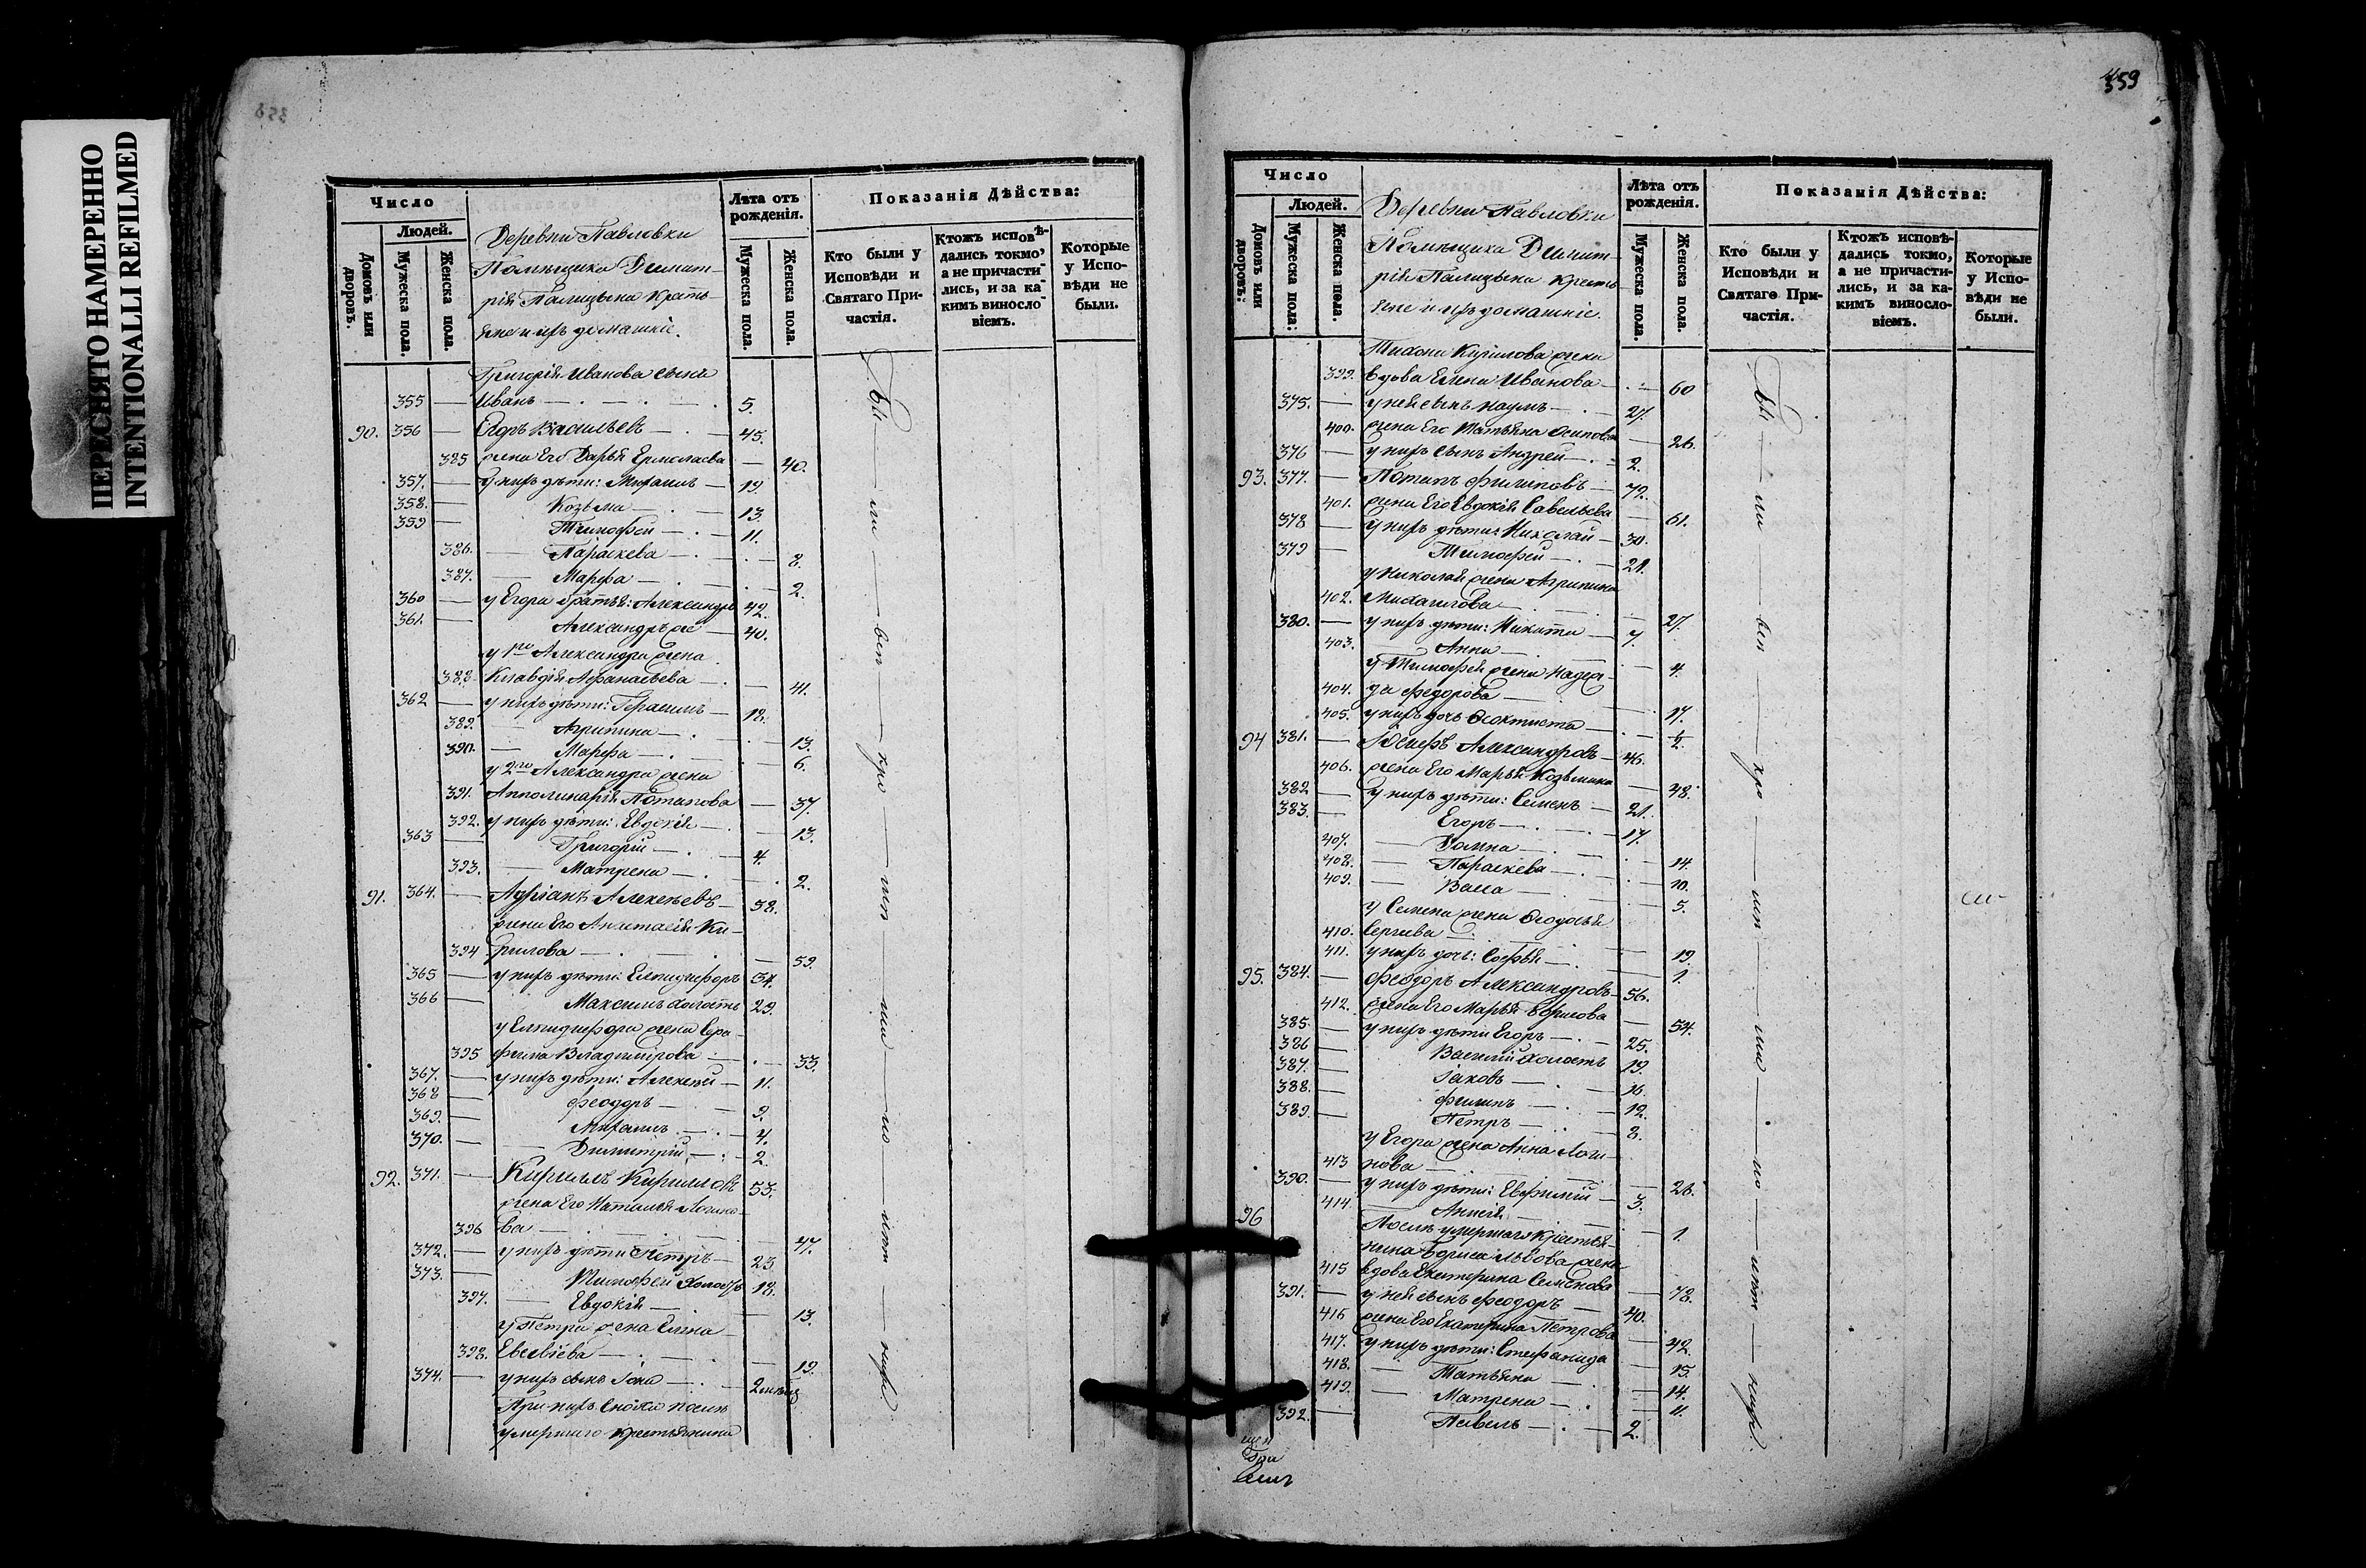 ПЕРЕСНЯТО НАМЕРЕННО
INTENTIONALLI REFILMED
Число
Людей.
Домовъ или дворовъ.
Мужеска пола.
Женска пола.
Деревни Павловки
Помѣщика Димит-
рія Палицына крестья-
яне и ихъ домашніе.
Лѣта отъ рожденія.
Мужеска пола.
Женска пола.
Показанія Дѣйства:
Кто были у Исповѣди и Святаго При-частія.
Ктожъ исповѣ-дались токмо, а не причасти-лись, и за ка-кимъ виносло-віемъ.
Которые у Испо-вѣди не были.
Григорія Иванова сынъ
355 — Иванъ — 5.
90. 356 — Егоръ Васильевъ — 45.
385 жена Его Дарья Ермолаева — 40.
357. — у нихъ дѣти: Михаилъ — 19.
358. — Козьма — 13.
359 — Тимофей — 11.
386. — Параскева — 8.
387. — Марфа — 2.
360 — у Егора братья: Александръ 42.
361. — Александръ же — 40.
у 1го Александра жена
388 Клавдія Афанасьева — 41.
362 — у нихъ дѣти: Герасимъ — 18.
389. — Агрипина — 13.
390. — Марфа — 6.
у 2го Александра жена
391. Апполинарія Потапова — 37.
392. у нихъ дѣти: Евдокія — 13.
363 — Григорій — 4.
393. — Матрена — 2.
91. 364. — Адріанъ Алексѣевъ — 58.
жена Его Анастасія Ки-
394 рилова — 59.
365 — у нихъ дѣти: Елпидифоръ 34.
366 — Максимъ холостъ 29.
у Елпидифора жена Сера-
395 фима Владимірова — 33.
367. — у нихъ дѣти: Алексѣй — 11.
368 — Феодоръ — 9.
369. — Михаилъ — 4.
370. — Димитрій — 2.
92. 371. — Кириллъ Кирилловъ 53.
жена Его Наталья Логино-
396 ва — 47.
372. — у нихъ дѣти Петръ — 23
373. — Тимофей холостъ 18.
397. — Евдокія — 13.
у Петра жена Елена
398. Евсевіева — 19.
374. — у нихъ сынъ Іона — 2 мѣсяц
При нихъ сноха послѣ
умершаго крестьянина
Бы — ли — вси — кро — ми — но — ихъ
359
Число
Людей.
Домовъ или дворовъ:
Мужеска пола:
Женска пола.
Деревни Павловки
Помѣщика Димит-
рія Палицына крестья-
яне и ихъ домашніе.
Лѣта отъ рожденія.
Мужеска пола.
Женска пола.
Показанія Дѣйства:
Кто были у Исповѣди и Святаго При-частія.
Ктожъ исповѣ-дались токмо, а не причасти-лись, и за ка-кимъ виносло-віемъ.
Которые у Испо-вѣди не были.
Тихона Кирилова жена
399. вдова Елена Иванова — 60
375. — у ней сынъ Наумъ — 27.
400. жена Его Татьяна Осипова — 26.
376 — у нихъ сынъ Андрей — 2.
93. 377. — Потапъ Филиповъ — 72.
401. жена Его Евдокія Савельева — 61.
378 — у нихъ дѣти: Николай — 30.
379 — Тимофей — 21.
у Николая жена Агрипина
402. Михаилова — 27.
380. — у нихъ дѣти: Никита — 7.
403. Анна — 4.
у Тимофея жена Надеж-
404. да Федорова — 17.
405. у нихъ дочь Феоктиста — ½.
94 381. — Іосифъ Александровъ — 46.
406. жена Его Марья Козьмина — 48.
382 — у нихъ дѣти: Семенъ — 21.
383. — Егоръ — 17.
407. — Домна — 14.
408. — Параскева — 10.
409. — Васса — 5.
у Семена жена Феодосья
410. Сергиева — 19.
411. у нихъ дочь: Софья — 1
95. 384. — Феодоръ Александровъ — 56.
412. жена Его Марья Борисова — 54.
385. — у нихъ дѣти Егоръ — 25.
386 — Василій холостъ 19.
387. — Іаковъ — 16.
388. — Филипъ — 12.
389. — Петръ — 8.
у Егора жена Анна Логи-
413 нова — 26.
390. — у нихъ дѣти: Евфимій — 3.
414. — Анисія — 1.
96 Послѣ умершаго крестья-
нина Бориса Львова жена
415 вдова Екатерина Семенова — 78.
391. — у ней сынъ Феодоръ — 40.
416 жена Его Екатерина Петрова — 42.
417. у нихъ дѣти: Стефанида — 15.
418. — Татьяна — 14.
419. — Матрена — 11.
392. — Павелъ — 2.
Бы — ли — вси — кро — ми — но — ихъ